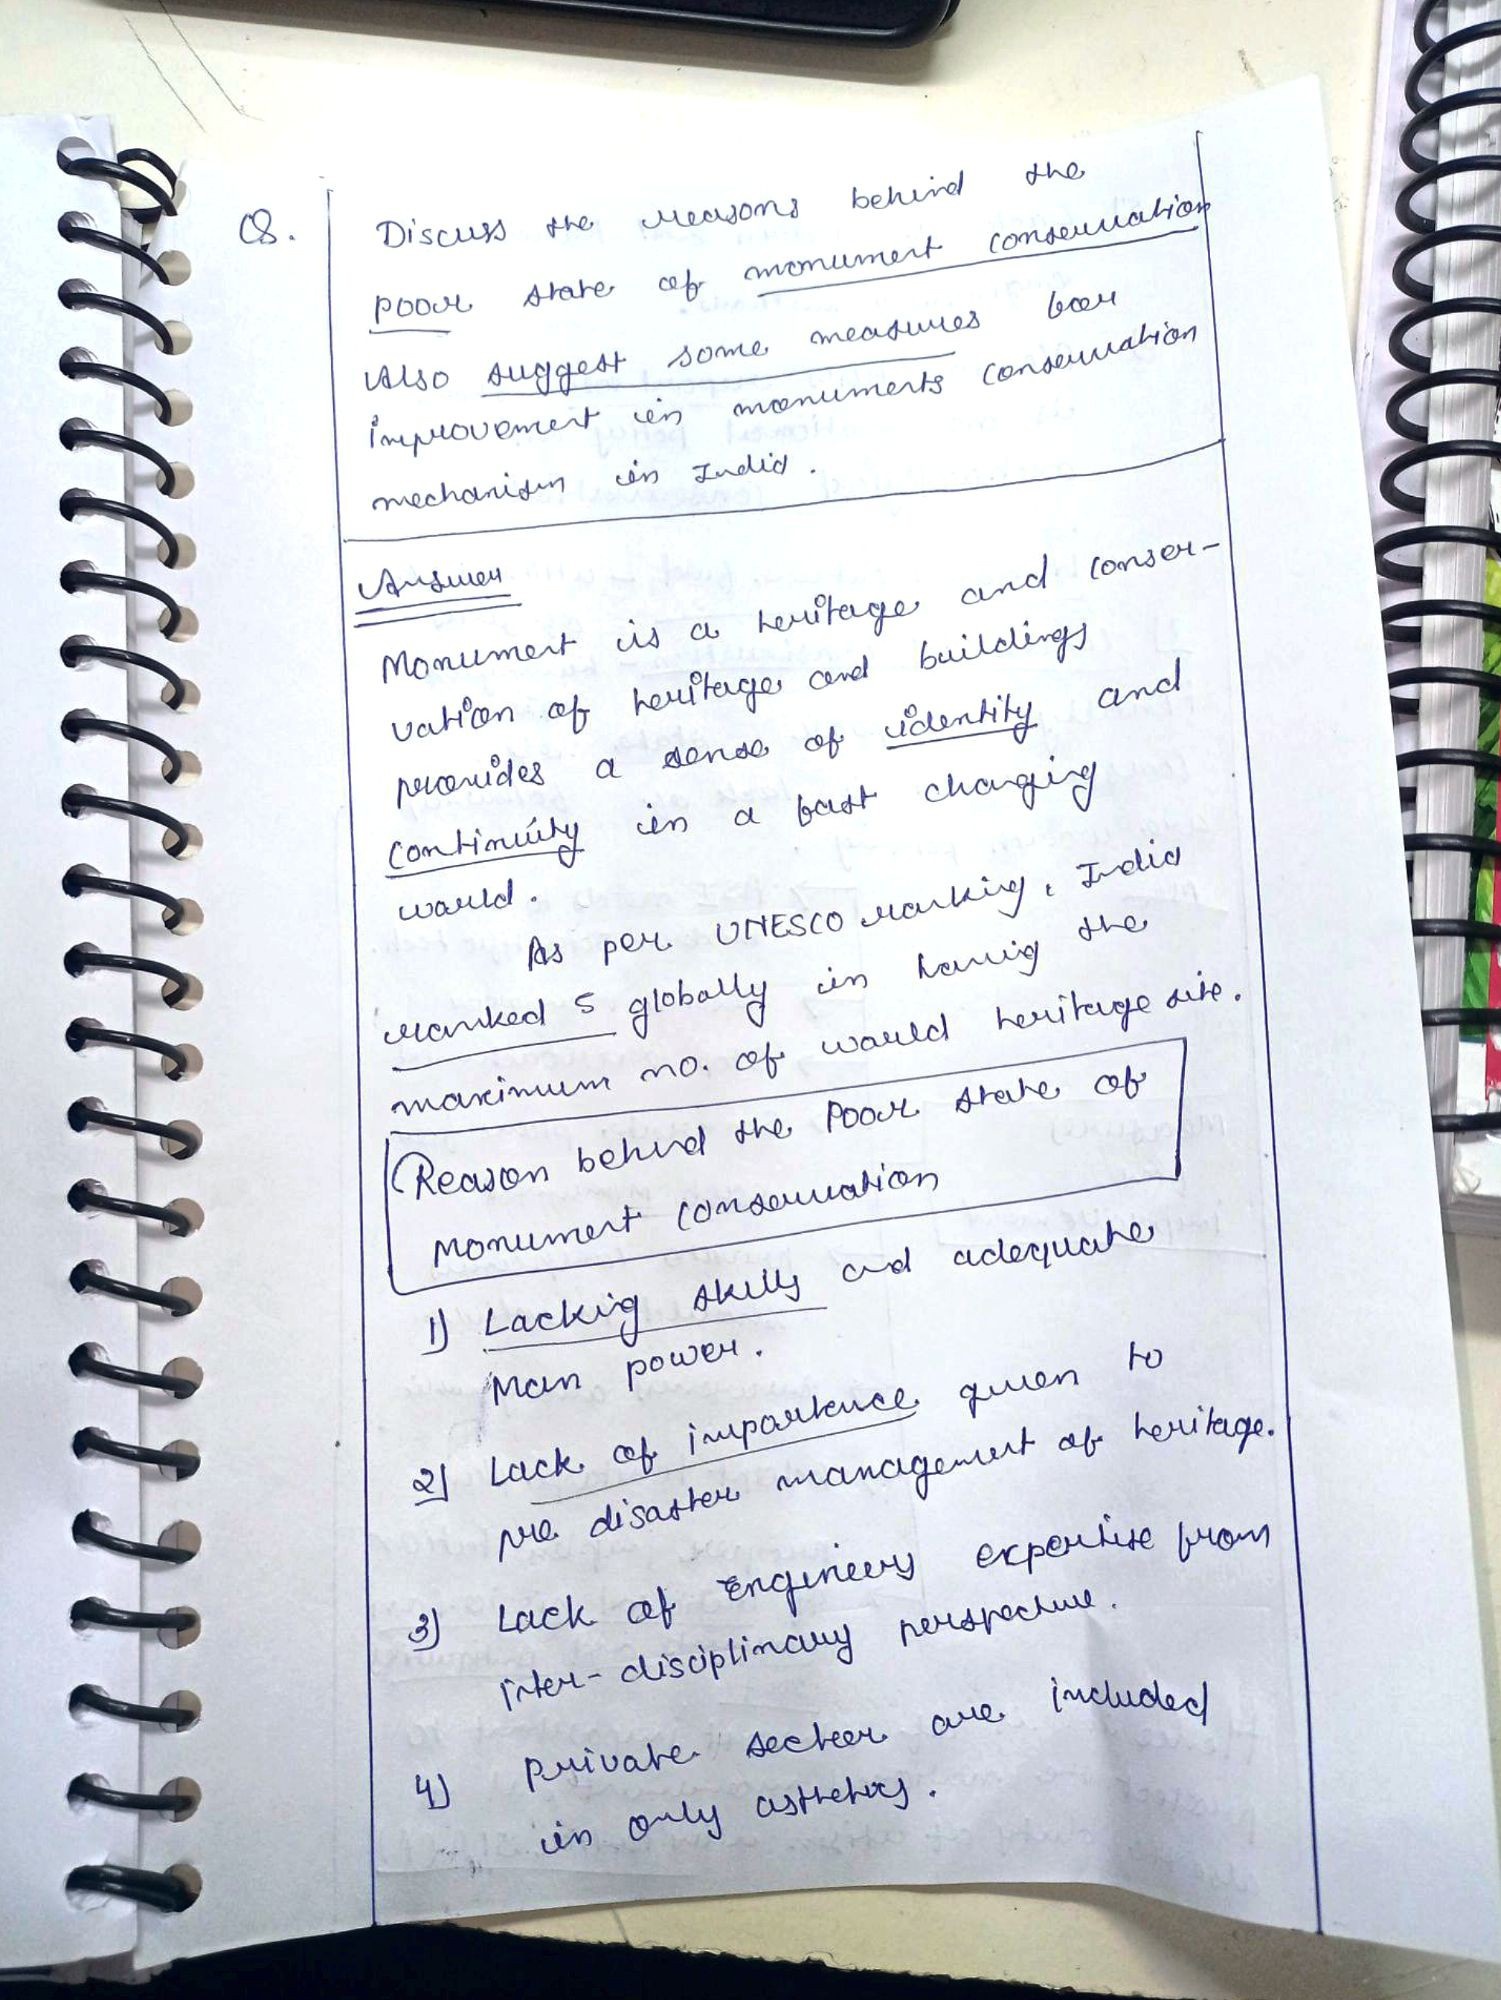 Q. Discuss the reasons behind the
poor state of monument conservation
Also suggest some measures for
improvement in monuments conservation
mechanism in India.
Answer
Monument is a heritage and conser-
vation of heritage and buildings
provides a sense of identity and
continuity in a fast changing
world.
As per UNESCO ranking, India
ranked 5 globally in having the
maximum no. of world heritage site.
Reason behind the Poor state of
Monument conservation
1) Lacking skills and adequate
Man power.
2) Lack of importance given to
pre disaster management of heritage.
3) Lack of Engineers expertise from
inter-disciplinary perspective.
4) private sector are included
in only asthetics.